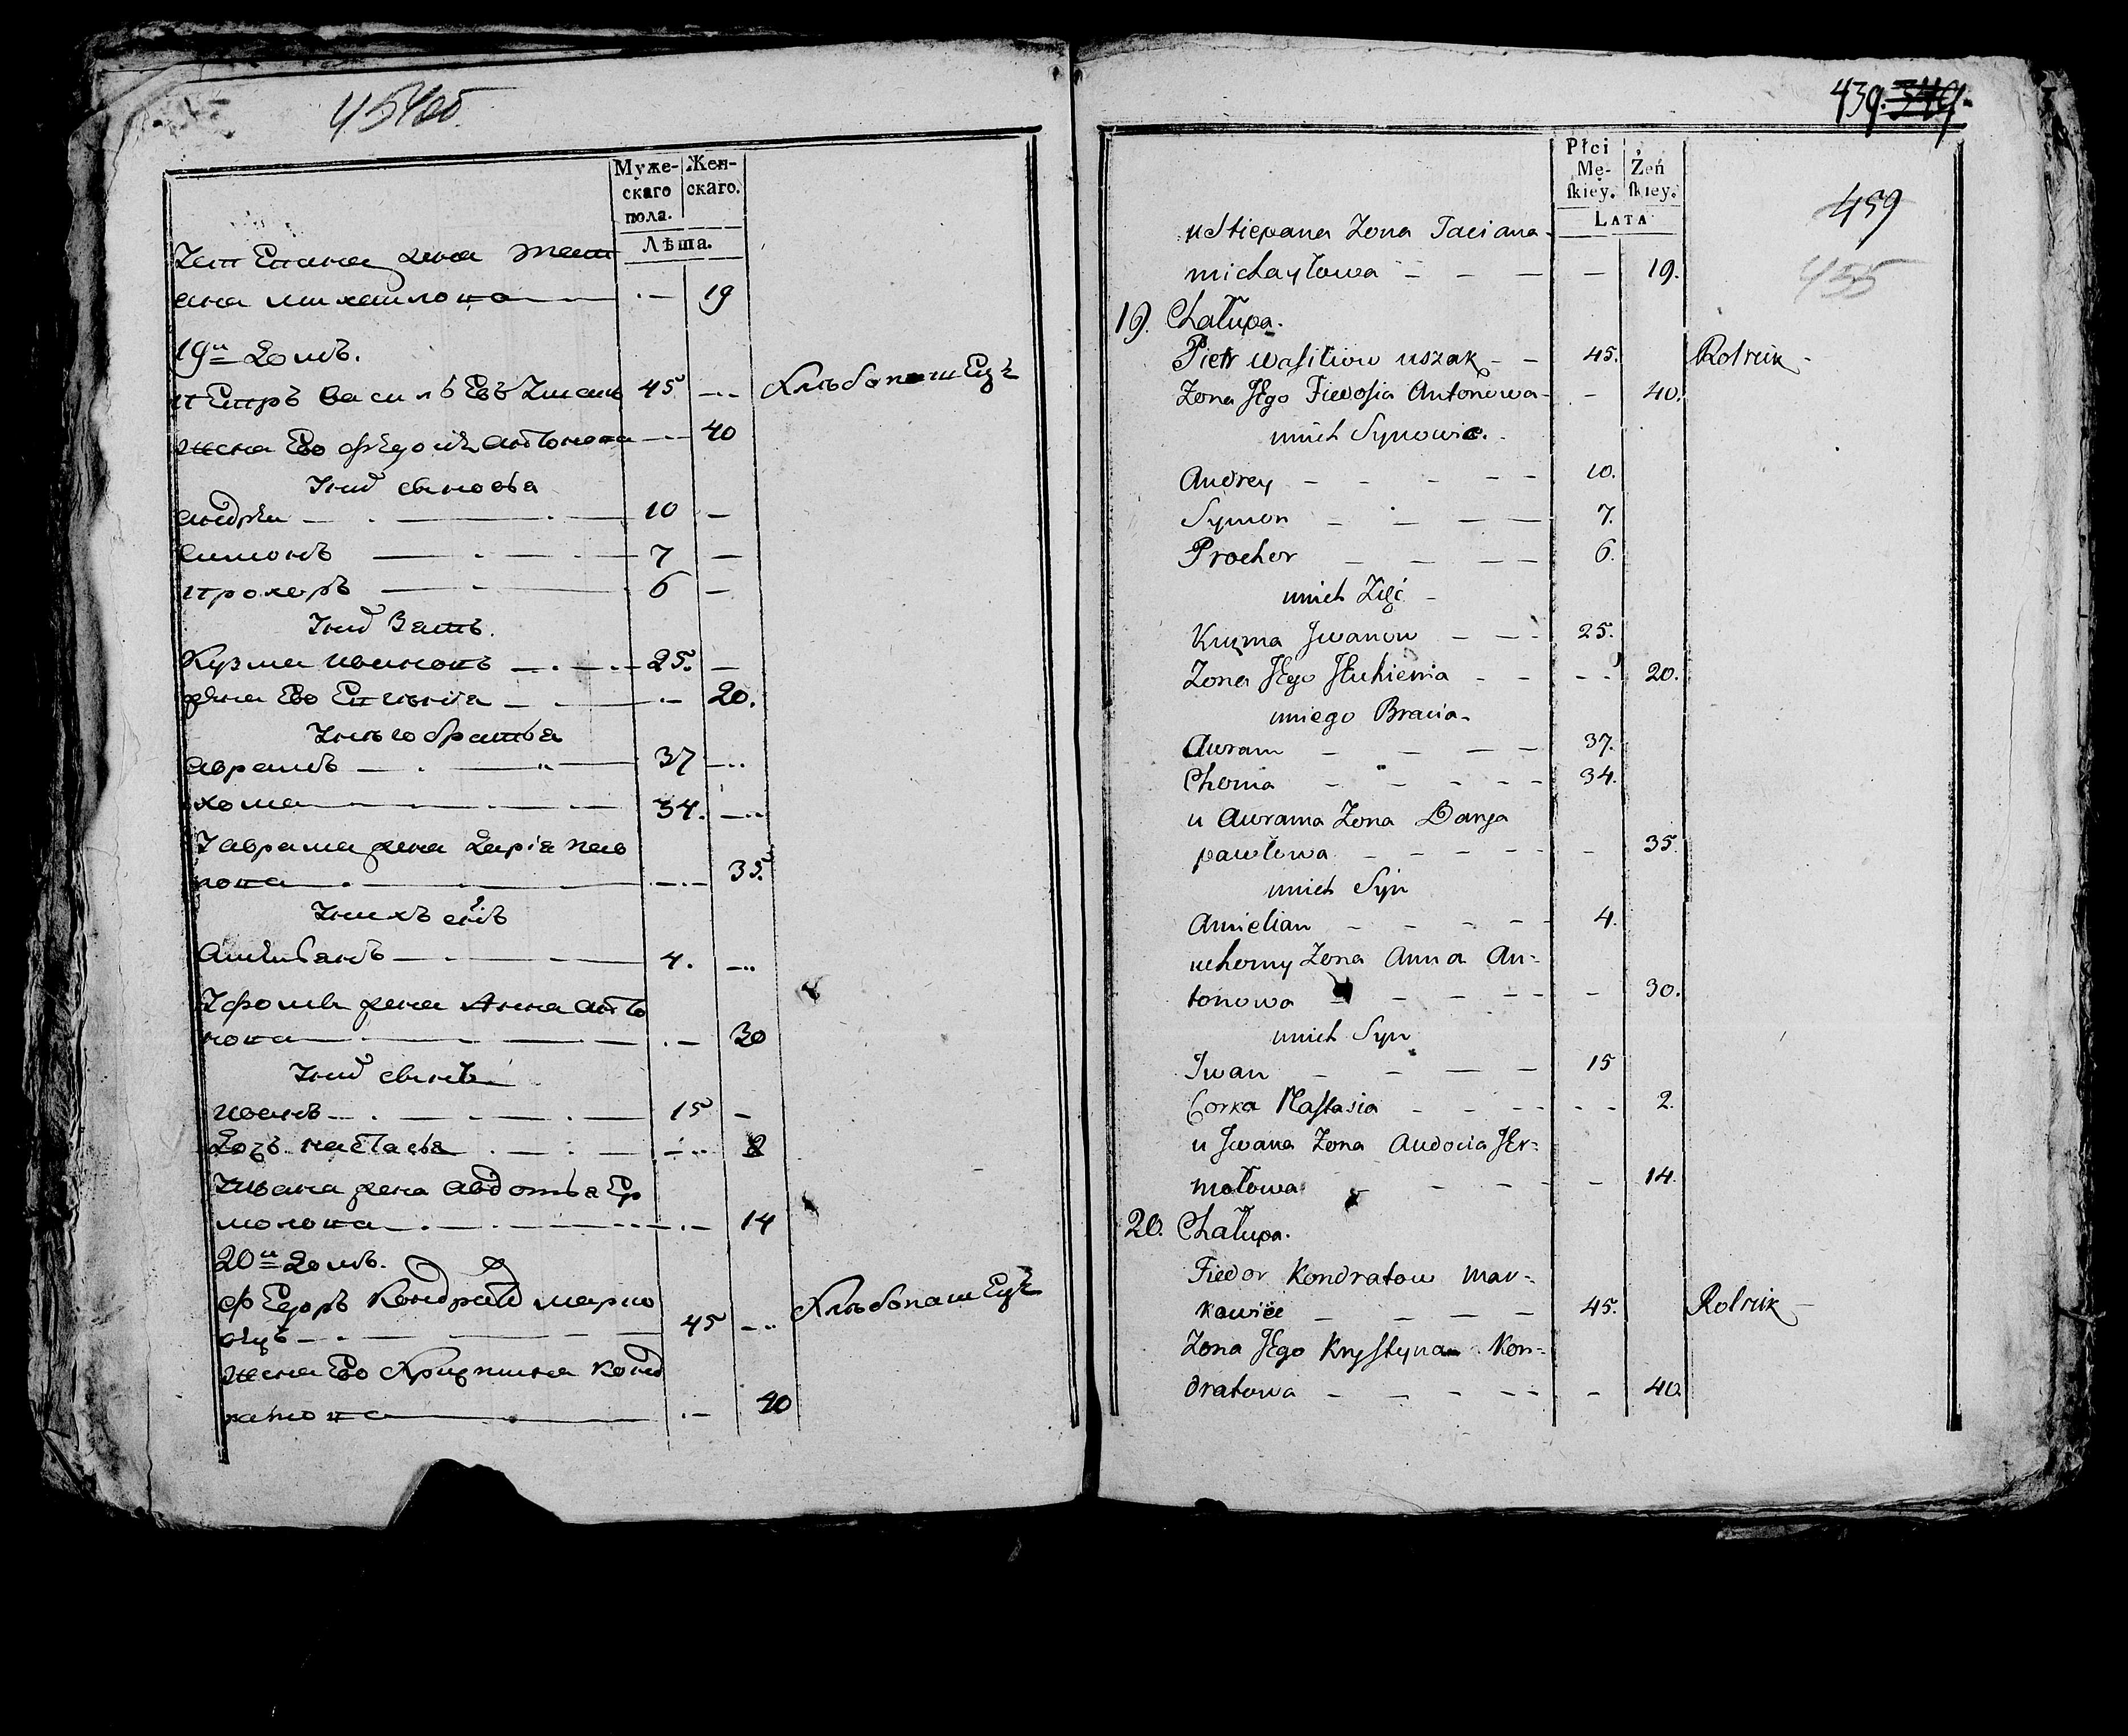 Муже-
скаго
пола.
Жен-
скаго.
Лѣта.
ана михаилова — 19
19й домъ.
Петръ Василъевъ 45 — хлѣбопашецъ
жена Ево антонова — 40
андрей — 10 —
симонъ — 7 —
прохоръ — 6 —
Зять.
Кузма ивановъ — 25. —
жена Ево — 20.
братья
аврамъ — 37 —
хома — 34. —
Уаврама жена Дарія пав
лова — 35.
Унихъ снъ
4. —
жена Анна анто
нова — 30
иванъ — 15 —
дочь настасья — 2
Уивана жена авдотья Ер
молова — 14
20й домъ.
Федоръ марко
вецъ — 45 — хлѣбопашецъ
жена Ево конд
ратова — 40
439. 349.
Płci
Mę-
skiey.
Żeń
skiey.
Lata
459
455
u Stiepana Zona Taciana
michayłowa — 19.
19. Chałupa.
Pietr wasiliow uszak — 45. Rolnik
Zona JEgo Fiedosia Antonowa — 40.
unich Synowie.
Andrey — 10.
Symon — 7.
Prochor — 6.
unich Zięć
Kuzma Jwanow — 25.
Zona JEgo — 20.
uniego Bracia
Awram — 37.
Choma — 34.
u Awrama Zona Darya
pawłowa — 35.
unich Syn
Amielian — 4.
uchomy Zona Anna An-
tonowa — 30.
unich Syn
Jwan — 15
Corka Nastasia — 2.
u Jwana Zona Audocia JEr-
mołowa — 14.
20. Chałupa.
Fiedor Kondratow mar-
kawiec — 45. Rolnik
Zona JEgo Krystyna Kon-
dratowa — 40.